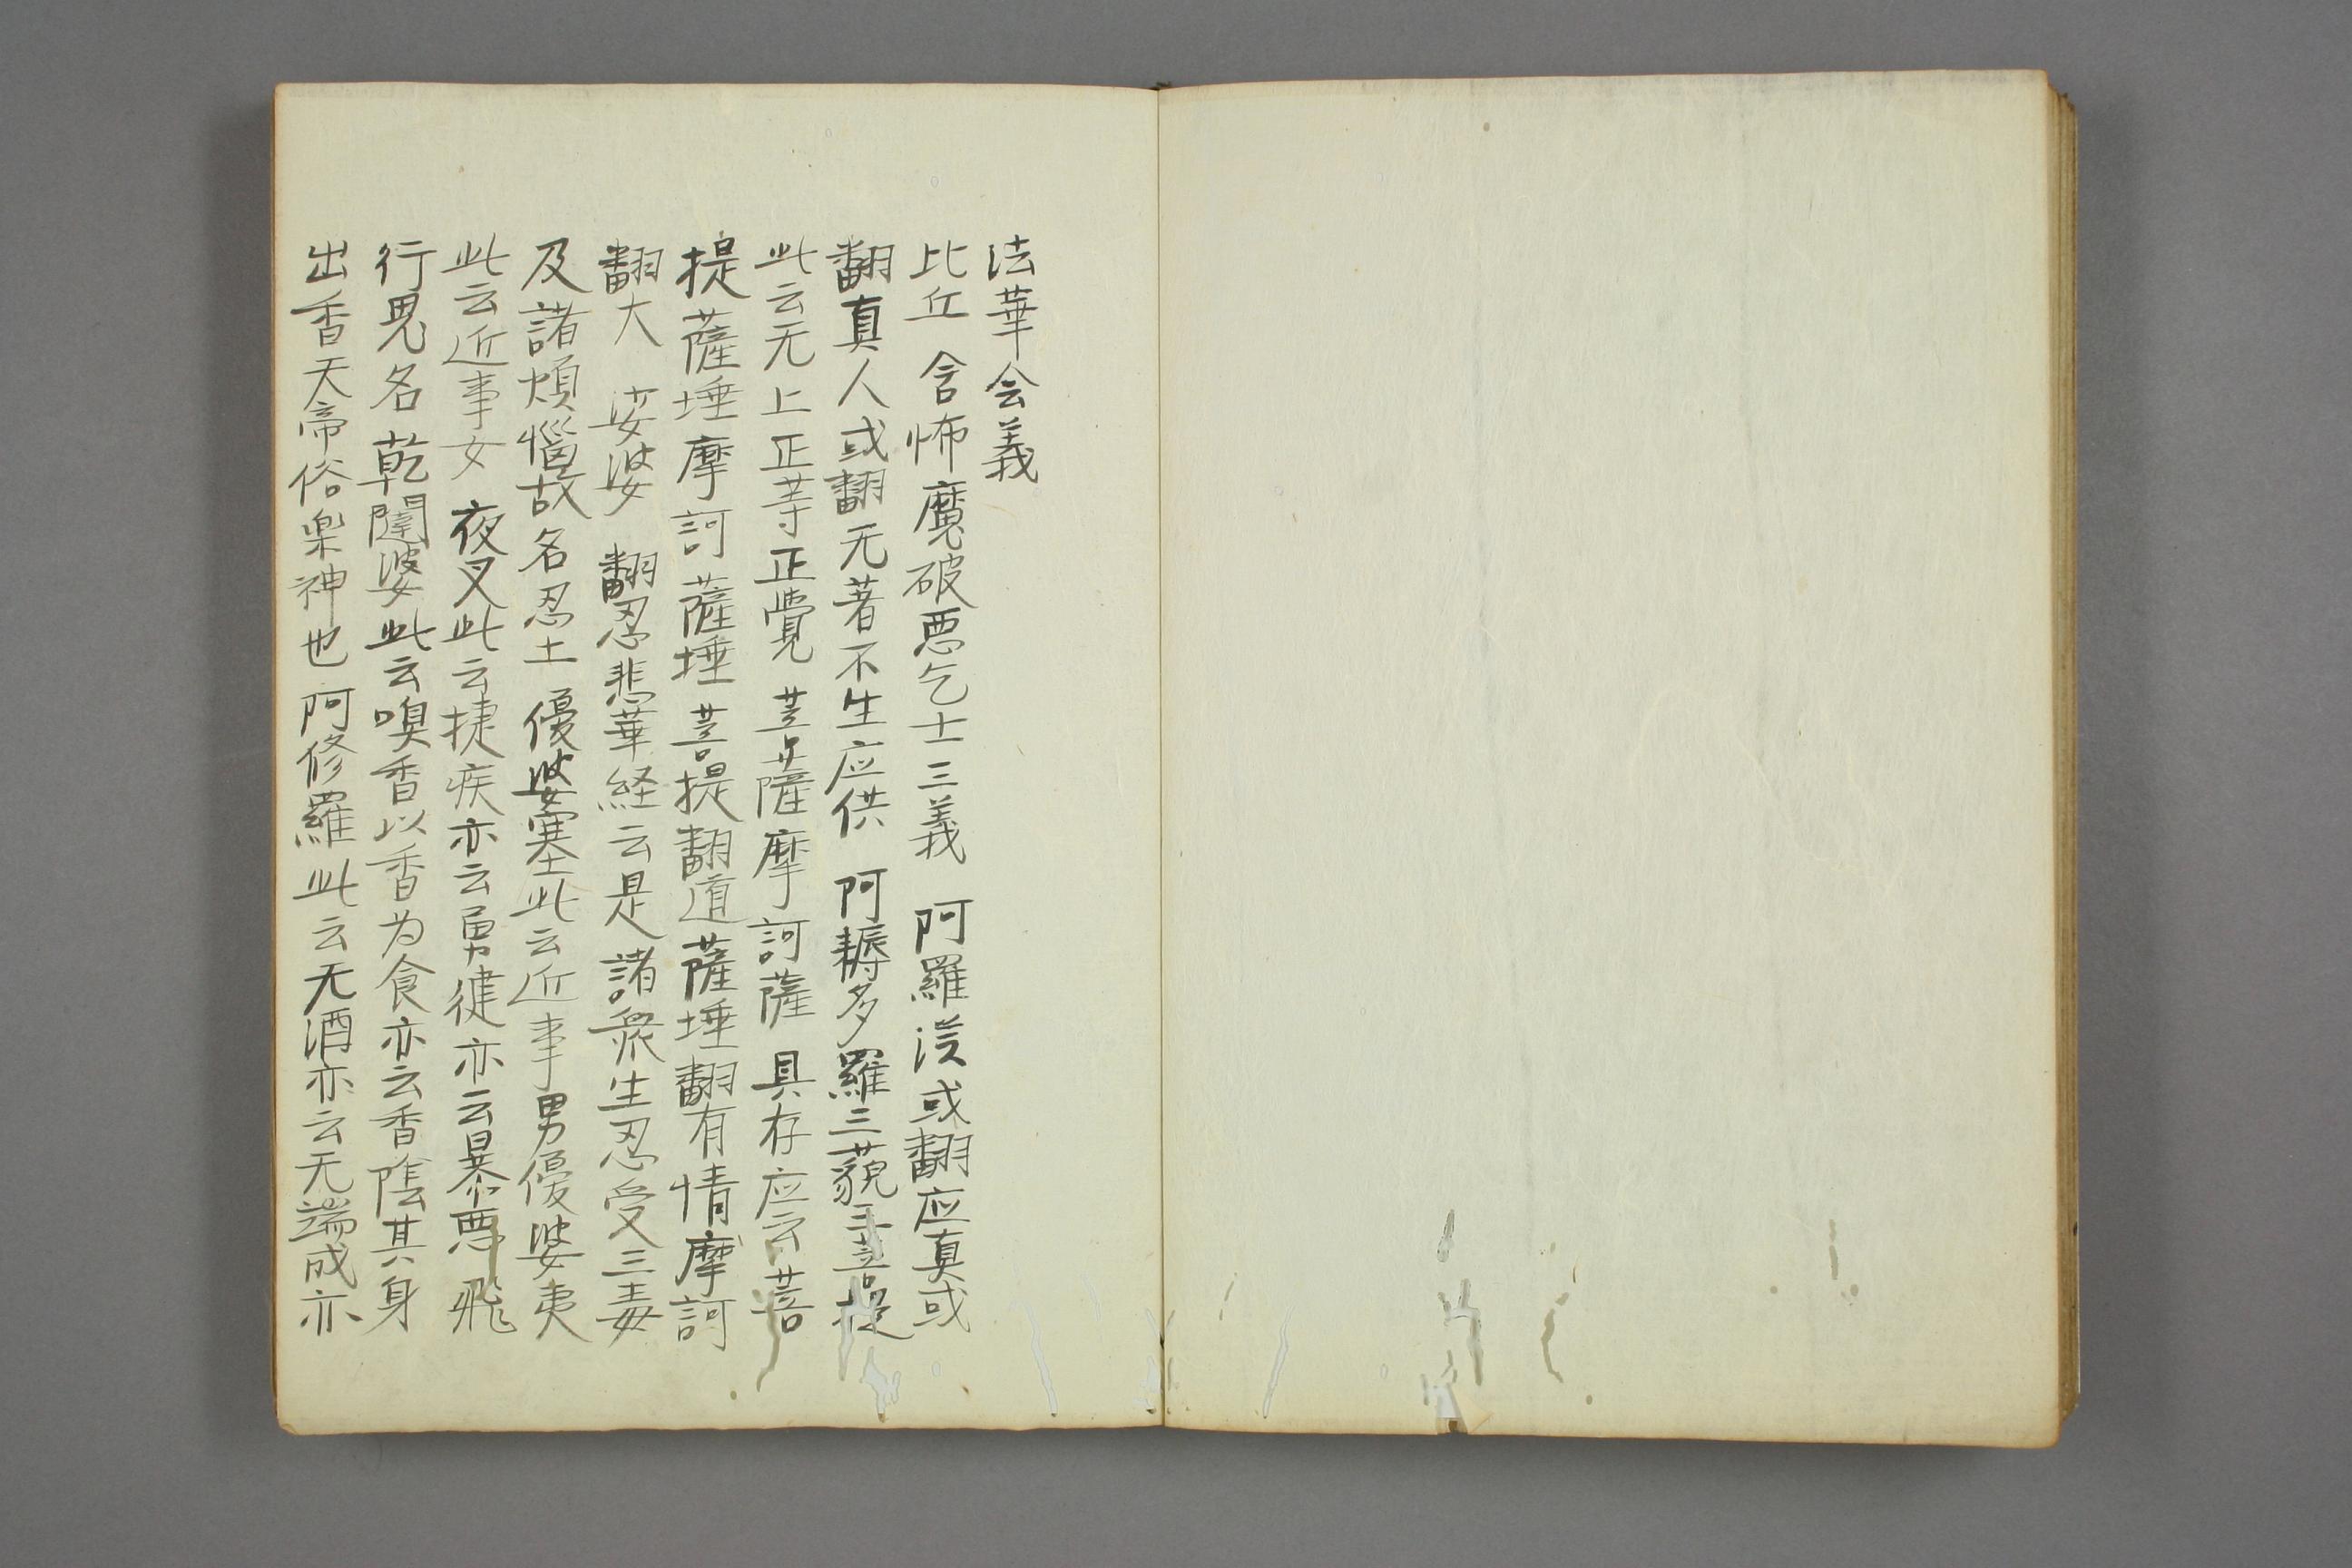 法華会義
比丘 含怖魔破悪乞士三義 阿羅漢或翻应真或
翻真人或翻无著不生应供 阿耨多羅三藐三菩提
此云无上正等正覚 菩薩摩訶薩 具存应云菩
提薩埵摩訶薩埵 菩提翻道薩埵翻有情摩訶
翻大 娑婆 翻忍悲華経云是諸衆生忍受三毒
及諸煩惱故名忍土 優婆塞此云近事男優婆夷
此云近事女 夜叉此云捷疾亦云勇健亦云暴悪飛
行鬼名 乾闥婆此云嗅香以香为食亦云香陰其身
出香天帝俗楽神也 阿修羅此云无酒亦云无端成亦